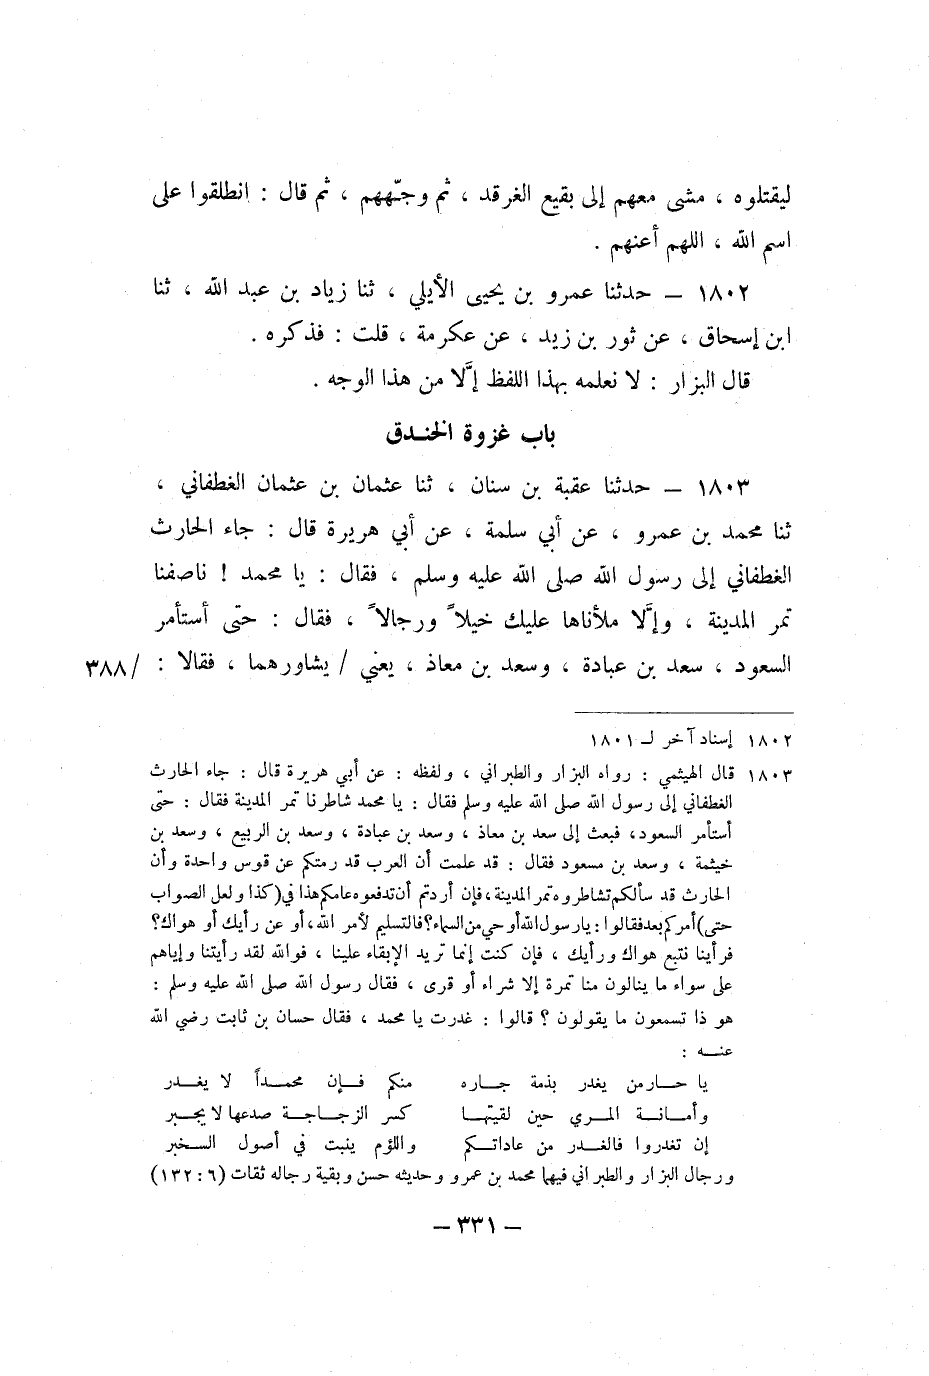 ليقتلوه ، مشى معهم إلى بقيع الغرقد ، ثم وجّههم ، ثم قال : انطلقوا على
اسم الله ، اللهم أعنهم .
١٨٠٢ – حدثنا عمرو بن يحيى الأيلي ، ثنا زياد بن عبد الله ، ثنا
ابن إسحاق ، عن ثور بن زيد ، عن عكرمة ، قلت : فذكره .
قال البزار : لا نعلمه بهذا اللفظ إلَّا من هذا الوجه .
باب غزوة الخندق
١٨٠٣ – حدثنا عقبة بن سنان ، ثنا عثمان بن عثمان الغطفاني ،
ثنا محمد بن عمرو ، عن أبي سلمة ، عن أبي هريرة قال : جاء الحارث
الغطفاني إلى رسول الله صلى الله عليه وسلم ، فقال : يا محمد ! ناصفنا
تمر المدينة ، وإلَّا ملأناها عليك خيلاً ورجالاً ، فقال : حتى أستأمر
السعود ، سعد بن عبادة ، وسعد بن معاذ ، يعني / يشاورهما ، فقالا : /٣٨٨
١٨٠٢ إسناد آخر لـ ١٨٠١
١٨٠٣ قال الهيثمي : رواه البزار والطبراني ، ولفظه : عن أبي هريرة قال : جاء الحارث
الغطفاني إلى رسول الله صلى الله عليه وسلم فقال : يا محمد شاطرنا تمر المدينة فقال : حتى
أستأمر السعود، فبعث إلى سعد بن معاذ ، وسعد بن عبادة ، وسعد بن الربيع ، وسعد بن
خيثمة ، وسعد بن مسعود فقال : قد علمت أن العرب قد رمتكم عن قوس واحدة وأن
الحارث قد سألكم تشاطروه تمر المدينة، فإن أردتم أن تدفعوه عامكم هذا في (كذا ولعل الصواب
حتى) أمركم بعد فقالوا : يا رسول الله أوحي من السماء؟ فالتسليم لأمر الله، أو عن رأيك أو هواك؟
فرأينا نتبع هواك ورأيك ، فإن كنت إنما تريد الإبقاء علينا ، فوالله لقد رأيتنا وإياهم
على سواء ما ينالون منا تمرة إلا شراء أو قرى ، فقال رسول الله صلى الله عليه وسلم :
هو ذا تسمعون ما يقولون ؟ قالوا : غدرت يا محمد ، فقال حسان بن ثابت رضي الله
عنــه :
يا حــار من يغدر بذمة جــاره منكم فــإن محمــداً لا يغــدر
وأمــانــة المــري حين لقيتهــا كسر الزجــاجــة صدعها لا يجــبر
إن تغدروا فالغــدر من عاداتــكم واللؤم ينبت في أصول الســخبر
ورجال البزار والطبراني فيهما محمد بن عمرو وحديثه حسن وبقية رجاله ثقات (٦ : ١٣٢)
– ٣٣١ –